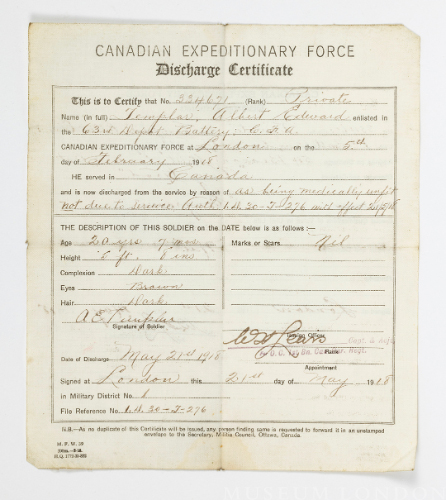 CANADIAN EXPEDITIONARY FORCE
Discharge Certificate
This is to Certify that No. 334671 (Rank) Private
Name (in full) Templar, Albert Edward enlisted in
the 63rd Depot Battery, C.F.A.
CANADIAN EXPEDITIONARY FORCE at London on the 5th
day of February 1918
HE served in Canada
and is now discharged from the service by reason of as being medically unfit
not due to service Auth. 1.d. 20-T-276 with effect
THE DESCRIPTION OF THIS SOLDIER on the DATE below is as follows :—
Age 20 yrs 7 mos Marks or Scars Nil
Height 5 ft. 8 ins
Complexion Dark
Eyes Brown
Hair Dark
A E Templar
Signature of Soldier
Issuing Officer
Capt. & Adjt.
Rank
Date of Discharge May 21st 1918 Appointment
Signed at London this 21st day of May 1918
in Military District No. 1
File Reference No. 1.d. 20-T-276
N.B.—As no duplicate of this Certificate will be issued, any person finding same is requested to forward it in an unstamped
envelope to the Secretary, Militia Council, Ottawa, Canada.